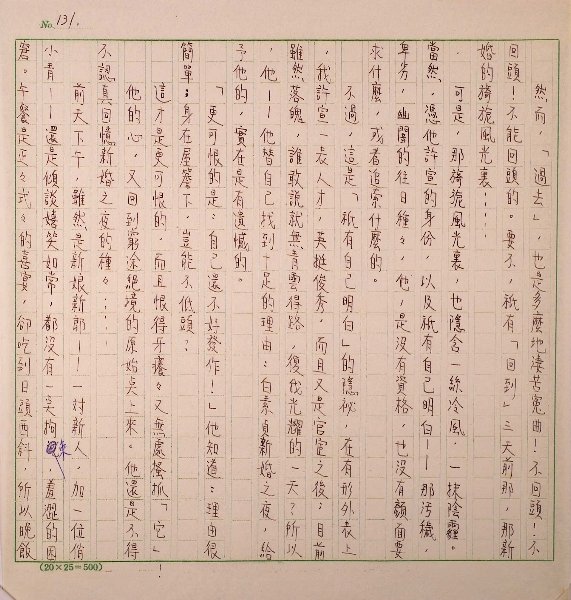 No. 131.
然而「過去」，也是多麼地淒苦冤曲！不回頭！不
回頭！不能回頭的。要不，祇有「回到」三天前那，那新
婚的旖旎風光裏……
可是，那旖旎風光裏，也隱含一絲冷風，一抹陰霾。
當然，憑他許宣的身份，以及祇有自己明白——那污穢，
卑劣，幽闇的往日種々，他，是沒有資格，也沒有顏面要
求什麼，或者追索什麼的。
不過，這是「祇有自己明白」的隱祕，在有形外表上
，我許宣一表人才，英挺俊秀，而且又是官宦之後；目前
雖然落魄，誰敢說就無青雲得路，復我光耀的一天？所以
，他——他替自己找到十足的理由：白素貞新婚之夜，給
予他的，實在是有遺憾的。
「更可恨的是：自己還不好發作！」他知道：理由很
簡單：身在屋簷下，豈能不低頭？
這才是更可恨的，而且恨得牙癢々又無處搔抓「它」
他的心，又回到窮途絕境的原始點上來。他還是不得
不認真回憶新婚之夜的種々：
前天下午，雖然是新娘新郎——一對新人，加一位俏
小青——還是傾談嬉笑如常，都沒有一
拘束，羞澀的因
窘。午餐是正々式々的喜宴，卻吃到日頭西斜，所以晚飯
(20×25=500)